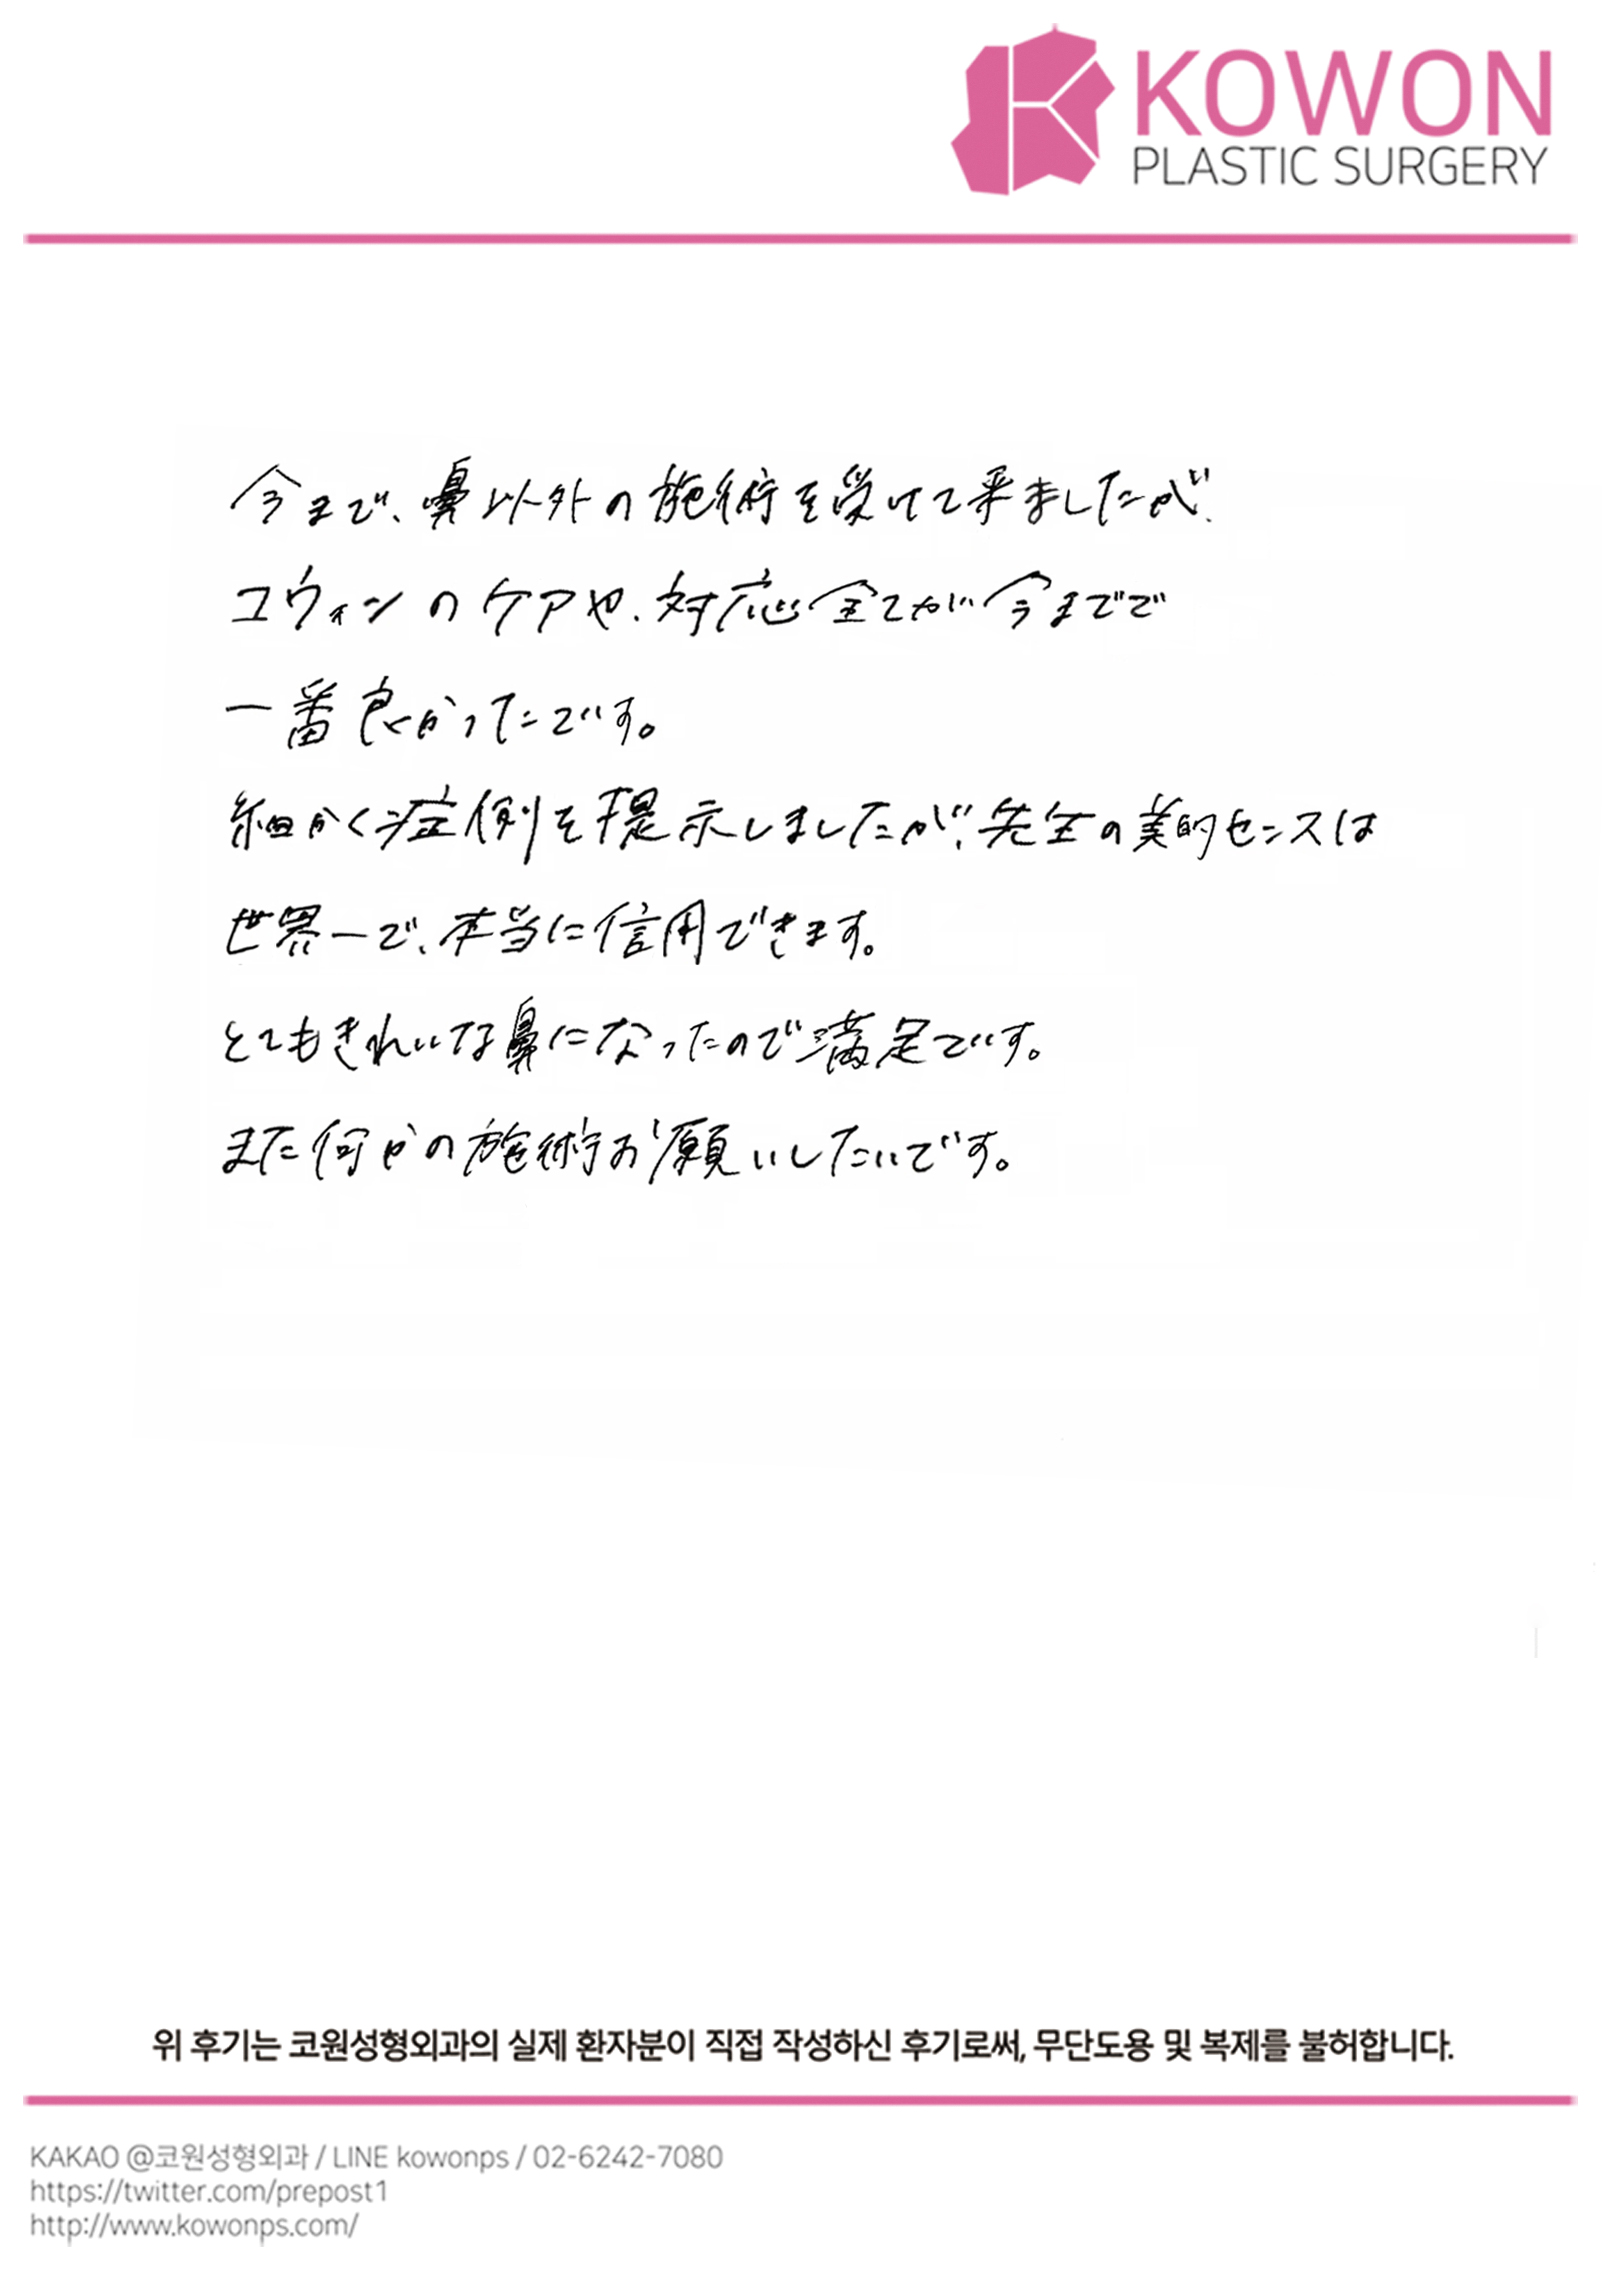 KOWON
PLASTIC SURGERY
今まで、鼻以外の施術を受けて来ましたが、
コウォンのケアや、対応全てが今までで
一番良かったです。
細かく症例を提示しましたが、先生の美的センスは
世界一で、本当に信用できます。
とてもきれいな鼻になったので満足です。
また何かの施術お願いしたいです。
위 후기는 코원성형외과의 실제 환자분이 직접 작성하신 후기로써, 무단도용 및 복제를 불허합니다.
KAKAO @코원성형외과 / LINE kowonps / 02-6242-7080
https://twitter.com/prepost1
http://www.kowonps.com/